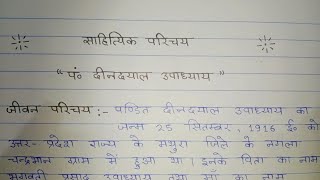 साहित्यिक परिचय
“ पं० दीनदयाल उपाध्याय ”
जीवन परिचय :- पण्डित दीनदयाल उपाध्याय का
जन्म 25 सितम्बर, 1916 ई० को
उत्तर- प्रदेश राज्य के मथुरा जिले के नगला
चन्द्रभान ग्राम में हुआ था। इनके पिता का नाम
भगवती प्रसाद उपाध्याय तथा माँ का नाम